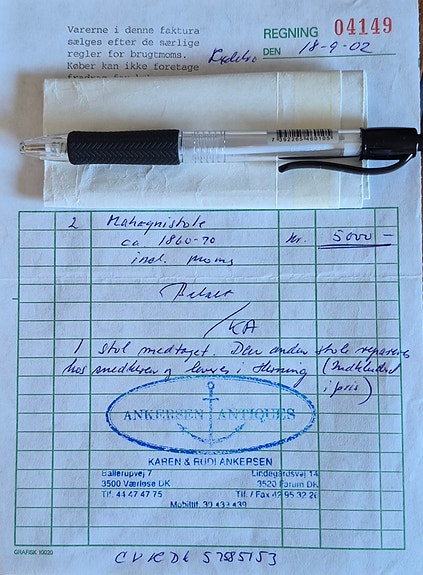 Varerne i denne faktura
sælges efter de særlige
regler for brugtmoms.
Køber kan ikke foretage
REGNING 04149
DEN 18-9-02
7392265460105
2 Mahognistole
ca 1860-70 kr. 5000-
incl. moms
Betalt
KA
1 stol medtaget Den anden stole repareres
hos snedkeren og leveres i Herning (Indkluderet
i pris)
ANKERSEN ANTIQUES
KAREN & RUDI ANKERSEN
Ballerupvej 7
3500 Værløse DK
Tlf. 44 47 47 75
Lindegårdsvej 14
3520 Farum DK
Tlf. / Fax 42 95 32 26
Mobiltlf. 30 43 3 439
GRAFISK 10020
CVR DK 57585153